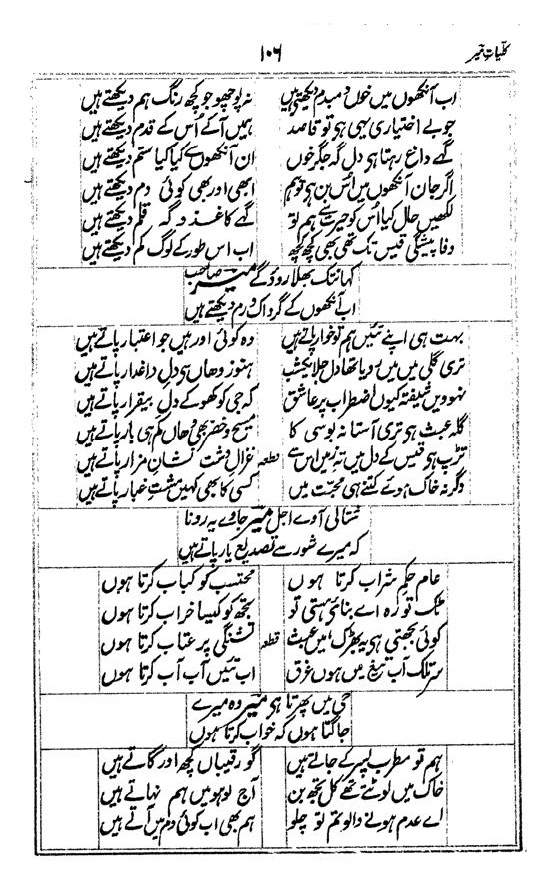 کلیاتِ میر
۱۰۶
اب آنکھوں میں خوں دمبدم دیکھتے ہیں نہ پوچھو جو کچھ رنگ ہم دیکھتے ہیں
جو بے اختیاری یہی ہو تو قاصد ہمیں آکے اُس کے قدم دیکھتے ہیں
گہے داغ رہتا ہی دل گہ جگر خوں ان آنکھوں سے کیا کیا ستم دیکھتے ہیں
اگر جان آنکھوں میں اُس بن ہی تو ہم ابھی اور بھی کوئی دم دیکھتے ہیں
لکھیں حال کیا اُس کو حیرت سے ہم تو گہے کاغذ و گہ قلم دیکھتے ہیں
وفا پیشگی قیس تک تھی بھی کچھ کچھ اب اس طور کے لوگ کم دیکھتے ہیں
کہانتک بھلا روؤگے میر صاحب
اب آنکھوں کے گرد اک ورم دیکھتے ہیں
بہت ہی اپنے تئیں ہم تو خوار پاتے ہیں وہ کوئی اور ہیں جو اعتبار پاتے ہیں
تری گلی میں میں رویا تھا دل جلا یکشب ہنوز وھاں ہی دلِ داغدار پاتے ہیں
نہوویں شیفتہ کیوں اضطراب پر عاشق کہ جی کو کھوکے دلِ بیقرار پاتے ہیں
گلہ عبث ہو تری آستانہ بوسی کا مسیح و خضر بھی وھاں کم ہی بار پاتے ہیں
تڑپ ہو قیس کے دل میں تہِ زمیں اس سے قطعہ غزالِ دشت نشانِ مزار پاتے ہیں
وگر نہ خاک ہوئے کتنے ہی محبّت میں کسی کا بھی کہیں مشتِ غبار پاتے ہیں
شتابی آوے اجل میر جاوے یہ رونا
کہ میرے شور سے تصدیع یار پاتے ہیں
عام حکمِ شراب کرتا ہوں محتسب کو کباب کرتا ہوں
ٹک تو رہ اے بنای ہستی تو تجھ کو کیسا خراب کرتا ہوں
کوئی بجھتی ہی یہ بھڑک میں عبث قطعہ تشنگی پر عتاب کرتا ہوں
سر تلک آبِ تیغ میں ہوں غرق اب تئیں آب آب کرتا ہوں
جی میں پھرتا ہی میر وہ میرے
جاگتا ہوں کہ خواب کرتا ہوں
ہم تو مطرب پسر کے جاتے ہیں گو رقیباں کچھ اور گاتے ہیں
خاک میں لوٹتے تھے کل تجھ بن آج لوہو میں ہم نہاتے ہیں
اے عدم ہونے والو تم تو چلو ہم بھی اب کوئی دم میں آتے ہیں